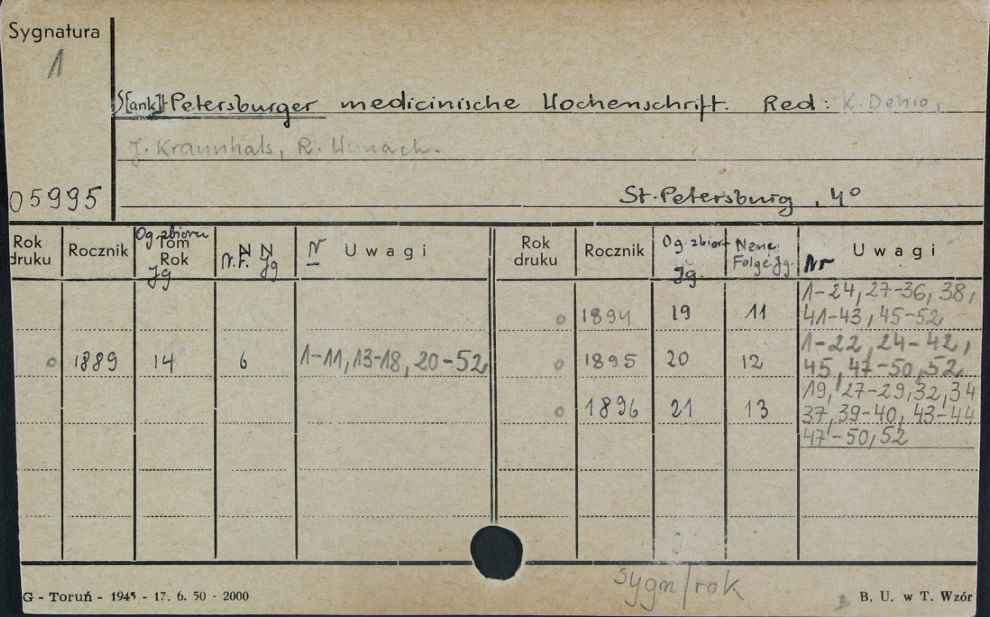 Sygnatura
1
S[ankt] Petersburger medicinische Wochenschrift. Red: K. Dehio,
J. Krannhals, R. Wanach.
05995
St. Petersburg, 4°
Rok druku Rocznik Og. zbioru Tom Rok Jg N.F. Jg Nr Uwagi Rok druku Rocznik Og. zbioru Jg. Neue Folge Jg. Nr Uwagi
o 1894 19 11 1-24, 27-36, 38,
41-43, 45-52
o 1889 14 6 1-11, 13-18, 20-52 o 1895 20 12 1-22, 24-42,
45, 47-50, 52
o 1896 21 13 19, 27-29, 32, 34
37, 39-40, 43-44
47-50, 52
sygn/rok
G - Toruń - 1945 - 17. 6. 50 - 2000 B. U. w T. Wzór